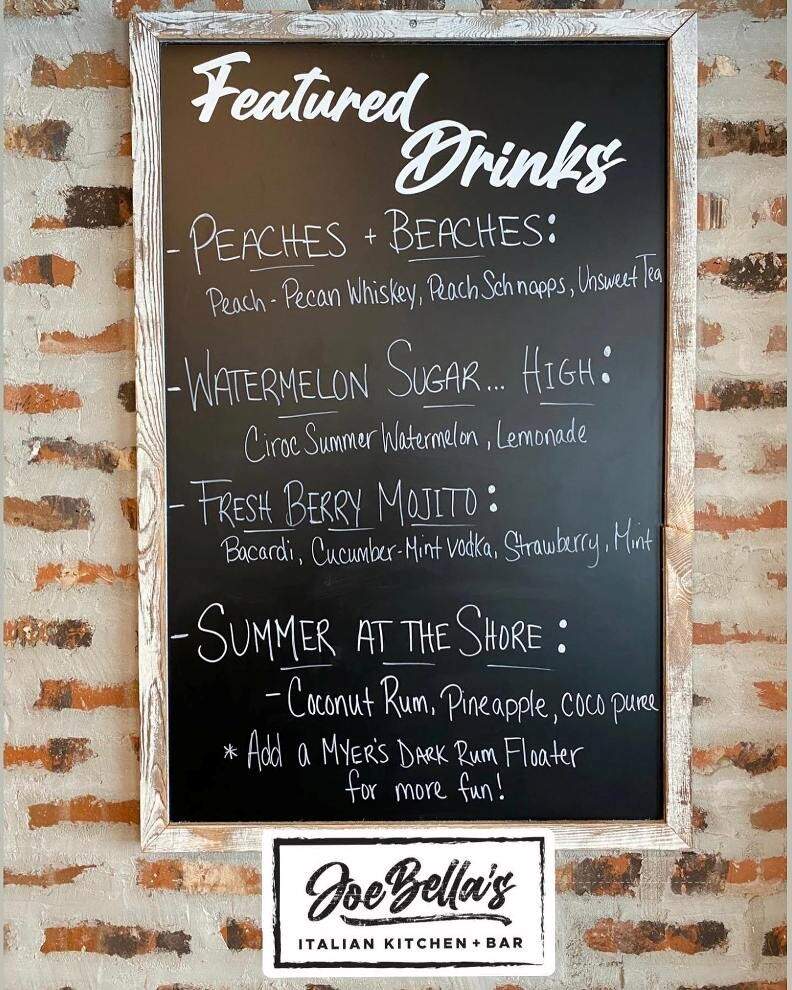 Featured
Drinks
- PEACHES + BEACHES:
Peach - Pecan Whiskey, Peach Schnapps, Unsweet Tea
- WATERMELON SUGAR... HIGH:
Ciroc Summer Watermelon, Lemonade
- FRESH BERRY MOJITO:
Bacardi, Cucumber-Mint Vodka, Strawberry, Mint
- SUMMER AT THE SHORE:
- Coconut Rum, Pineapple, coco puree
* Add a MYER'S DARK Rum Floater
for more fun!
JoeBella's
ITALIAN KITCHEN + BAR